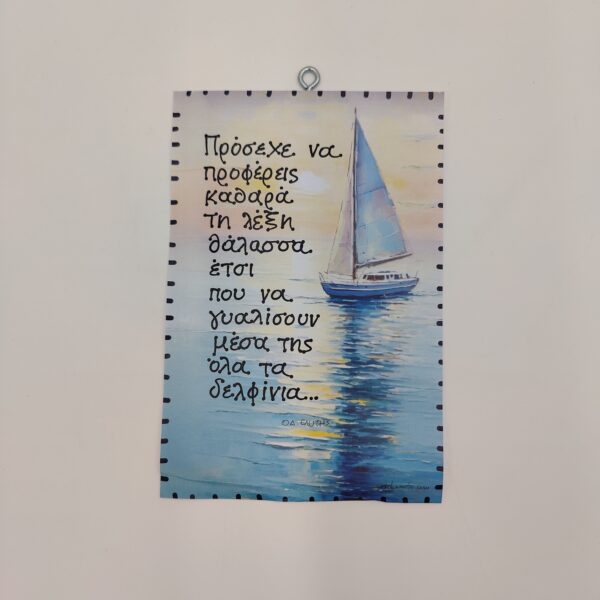 Πρόσεχε να
προφέρεις
καθαρά
τη λέξη
θάλασσα
έτσι
που να
γυαλίσουν
μέσα της
όλα τα
δελφίνια...
ΟΔ. ΕΛΥΤΗΣ